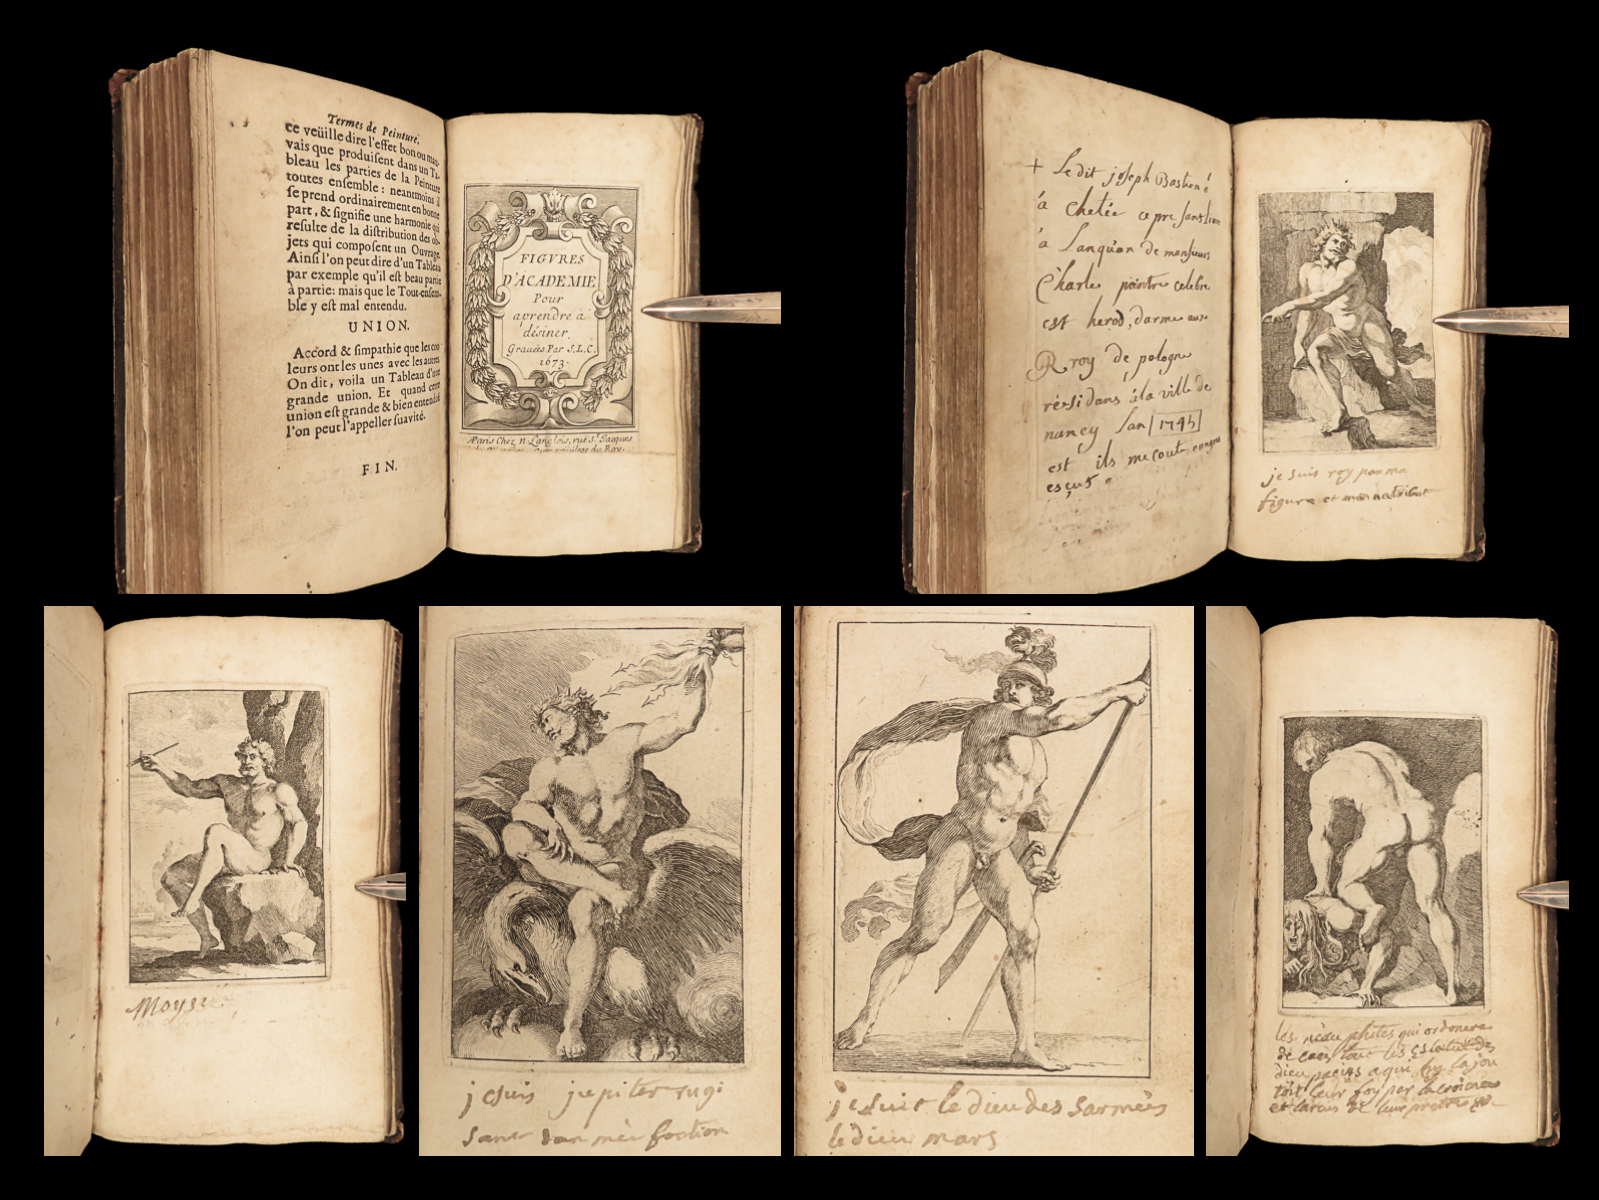 Termes de Peinture.
ce veüille dire l'effet bon ou mau-
vais que produisent dans un Ta-
bleau les parties de la Peinture
toutes ensemble : neantmoins il
se prend ordinairement en bonne
part, & signifie une harmonie qui
resulte de la distribution des ob-
jets qui composent un Ouvrage.
Ainsi l'on peut dire d'un Tableau
par exemple qu'il est beau partie
à partie: mais que le Tout-ensem-
ble y est mal entendu.
UNION.
Accord & simpathie que les cou-
leurs ont les unes avec les autres
On dit, voila un Tableau d'une
grande union. Et quand cette
union est grande & bien entenduë
l'on peut l'appeller suavité.
FIN.
FIGVRES
D'ACADEMIE
Pour
aprendre a
désiner.
Gravées Par S.L.C.
1673.
AParis Chez N. Langlois, rue St. Jacques
privilege du Roy.
+ Le dit joseph Bastien
á chetée ce pre sans livre
a Lanquan de monsieurs
Charle peintre celebre
est herod, darme aus
R roy de pologne
résidans á la ville de
nancy Lan 1745
est ils me coute
esçus
je suis roy par ma
figure et mon natribut
Moyse
je suis jupiter rugi
sans dan mes fonction
je suis le dieu des Sarmés
le dieu mars
Les
de
dieu